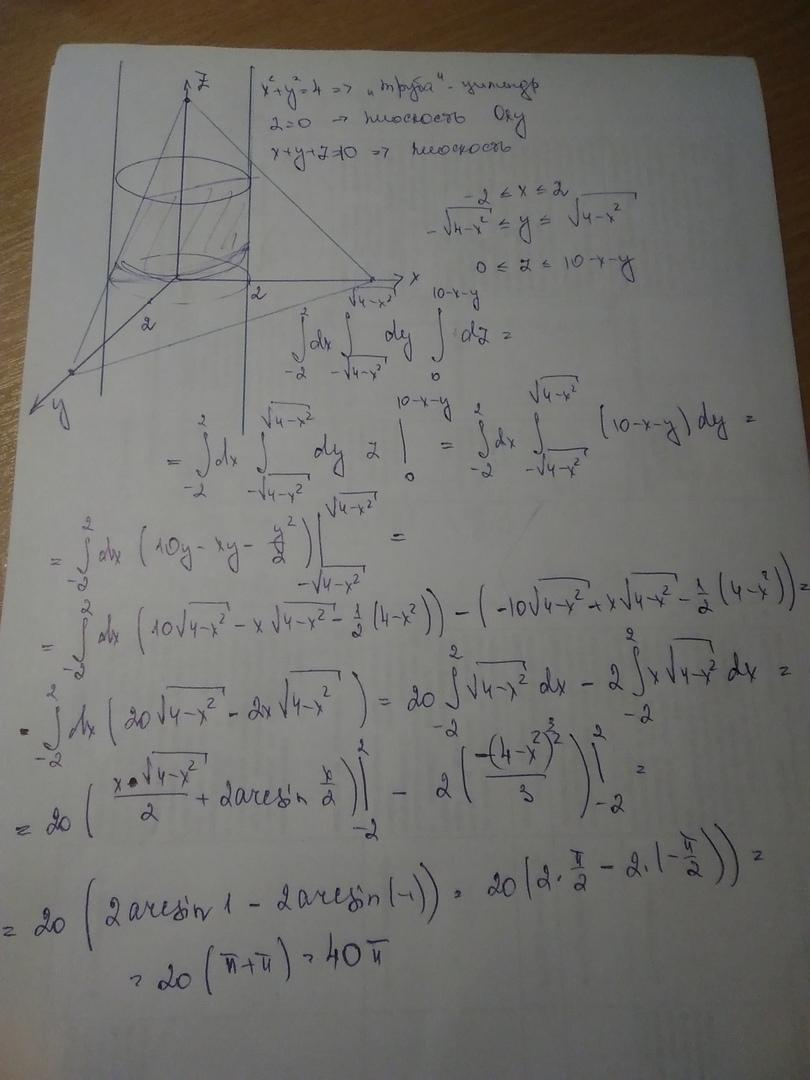 Z
x² + y² = 4 => „труба" - цилиндр
z=0 → плоскость Oxy
x+y+z=10 => плоскость
-2 ≤ x ≤ 2
-√(4-x²) ≤ y ≤ √(4-x²)
0 ≤ z ≤ 10-x-y
x
2
2
y
∫_{-2}^{2} dx ∫_{-√(4-x²)}^{√(4-x²)} dy ∫_{0}^{10-x-y} dz =
= ∫_{-2}^{2} dx ∫_{-√(4-x²)}^{√(4-x²)} dy z |_{0}^{10-x-y} = ∫_{-2}^{2} dx ∫_{-√(4-x²)}^{√(4-x²)} (10-x-y) dy =
= ∫_{-2}^{2} dx (10y - xy - y²/2) |_{-√(4-x²)}^{√(4-x²)} =
= ∫_{-2}^{2} dx (10√(4-x²) - x√(4-x²) - 1/2 (4-x²)) - (-10√(4-x²) + x√(4-x²) - 1/2 (4-x²)) =
∫_{-2}^{2} dx (20√(4-x²) - 2x√(4-x²)) = 20 ∫_{-2}^{2} √(4-x²) dx - 2 ∫_{-2}^{2} x√(4-x²) dx =
= 20 (x·√(4-x²)/2 + 2arcsin x/2) |_{-2}^{2} - 2 (-(4-x²)^{3/2}/3) |_{-2}^{2} =
= 20 (2arcsin 1 - 2arcsin(-1)) = 20 (2·π/2 - 2·(-π/2)) =
= 20 (π+π) = 40π